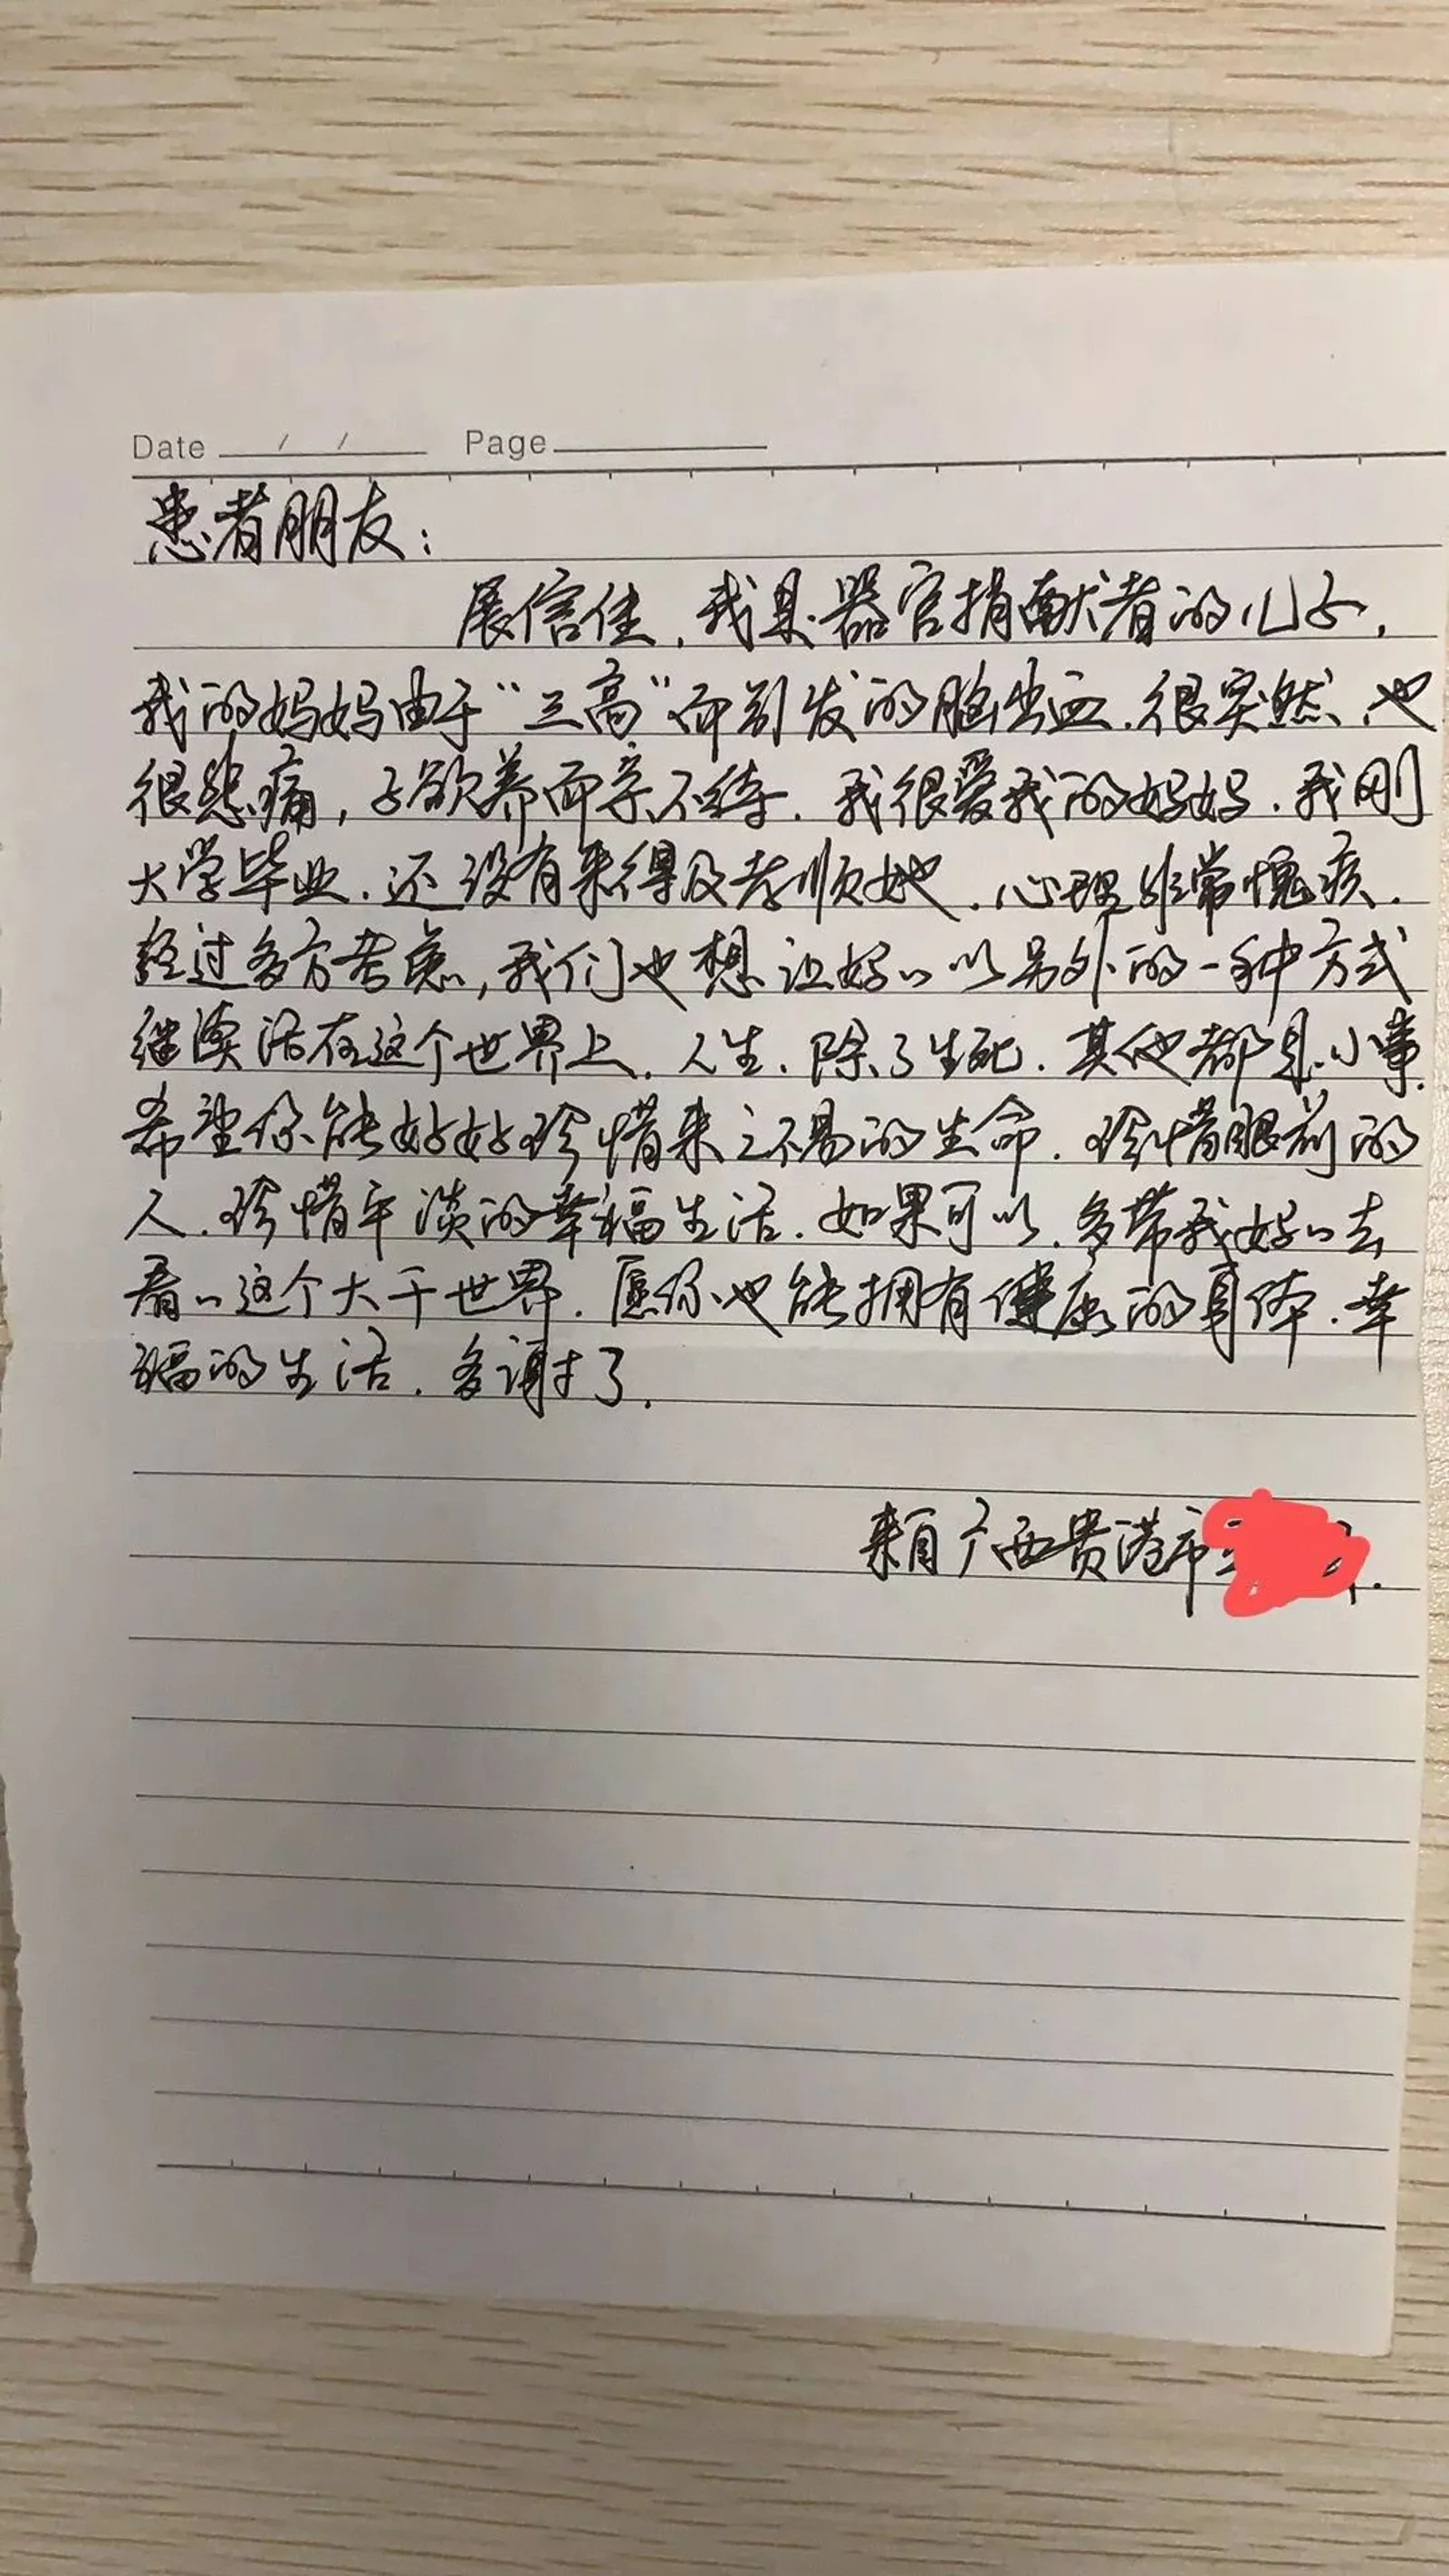 Date / / Page
患者朋友：
展信佳，我是器官捐献者的儿子，
我的妈妈由于“三高”而引发的脑出血．很突然、也
很悲痛，子欲养而亲不待．我很爱我的妈妈．我刚
大学毕业．还没有来得及孝顺她．心理非常愧疚．
经过多方考虑，我们也想让妈〃以另外的一种方式
继续活在这个世界上．人生．除了生死．其他都是小事．
希望你能好好珍惜来之不易的生命．珍惜眼前的
人．珍惜平淡的幸福生活．如果可以．多带我妈〃去
看〃这个大千世界．愿你也能拥有健康的身体．幸
福的生活．多谢了．
来自广西贵港市